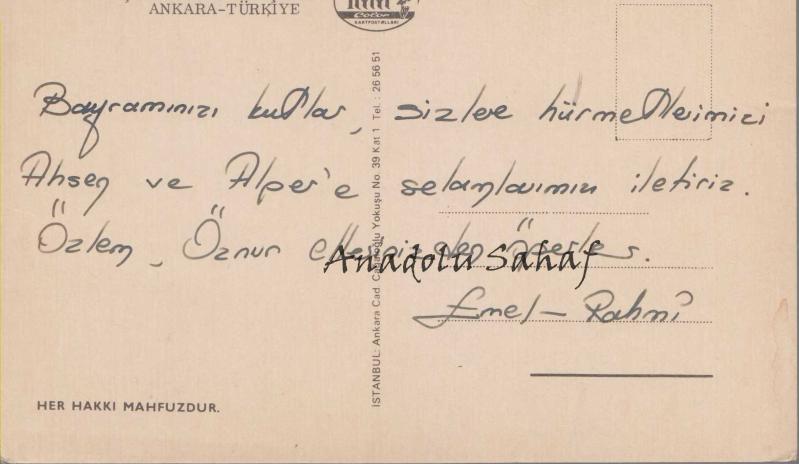 ANKARA-TÜRKİYE
Color
KARTPOSTALLARI
Bayramınızı kutlar, sizlere hürmetlerimizi
Ahsen ve Alper'e selamlarımızı iletiriz.
Özlem, Öznur ellerinizden öperler.
Emel - Rahmi
Anadolu Sahaf
İSTANBUL: Ankara Cad. Cağaloğlu Yokuşu No. 39 Kat 1 Tel.: 26 56 51
HER HAKKI MAHFUZDUR.